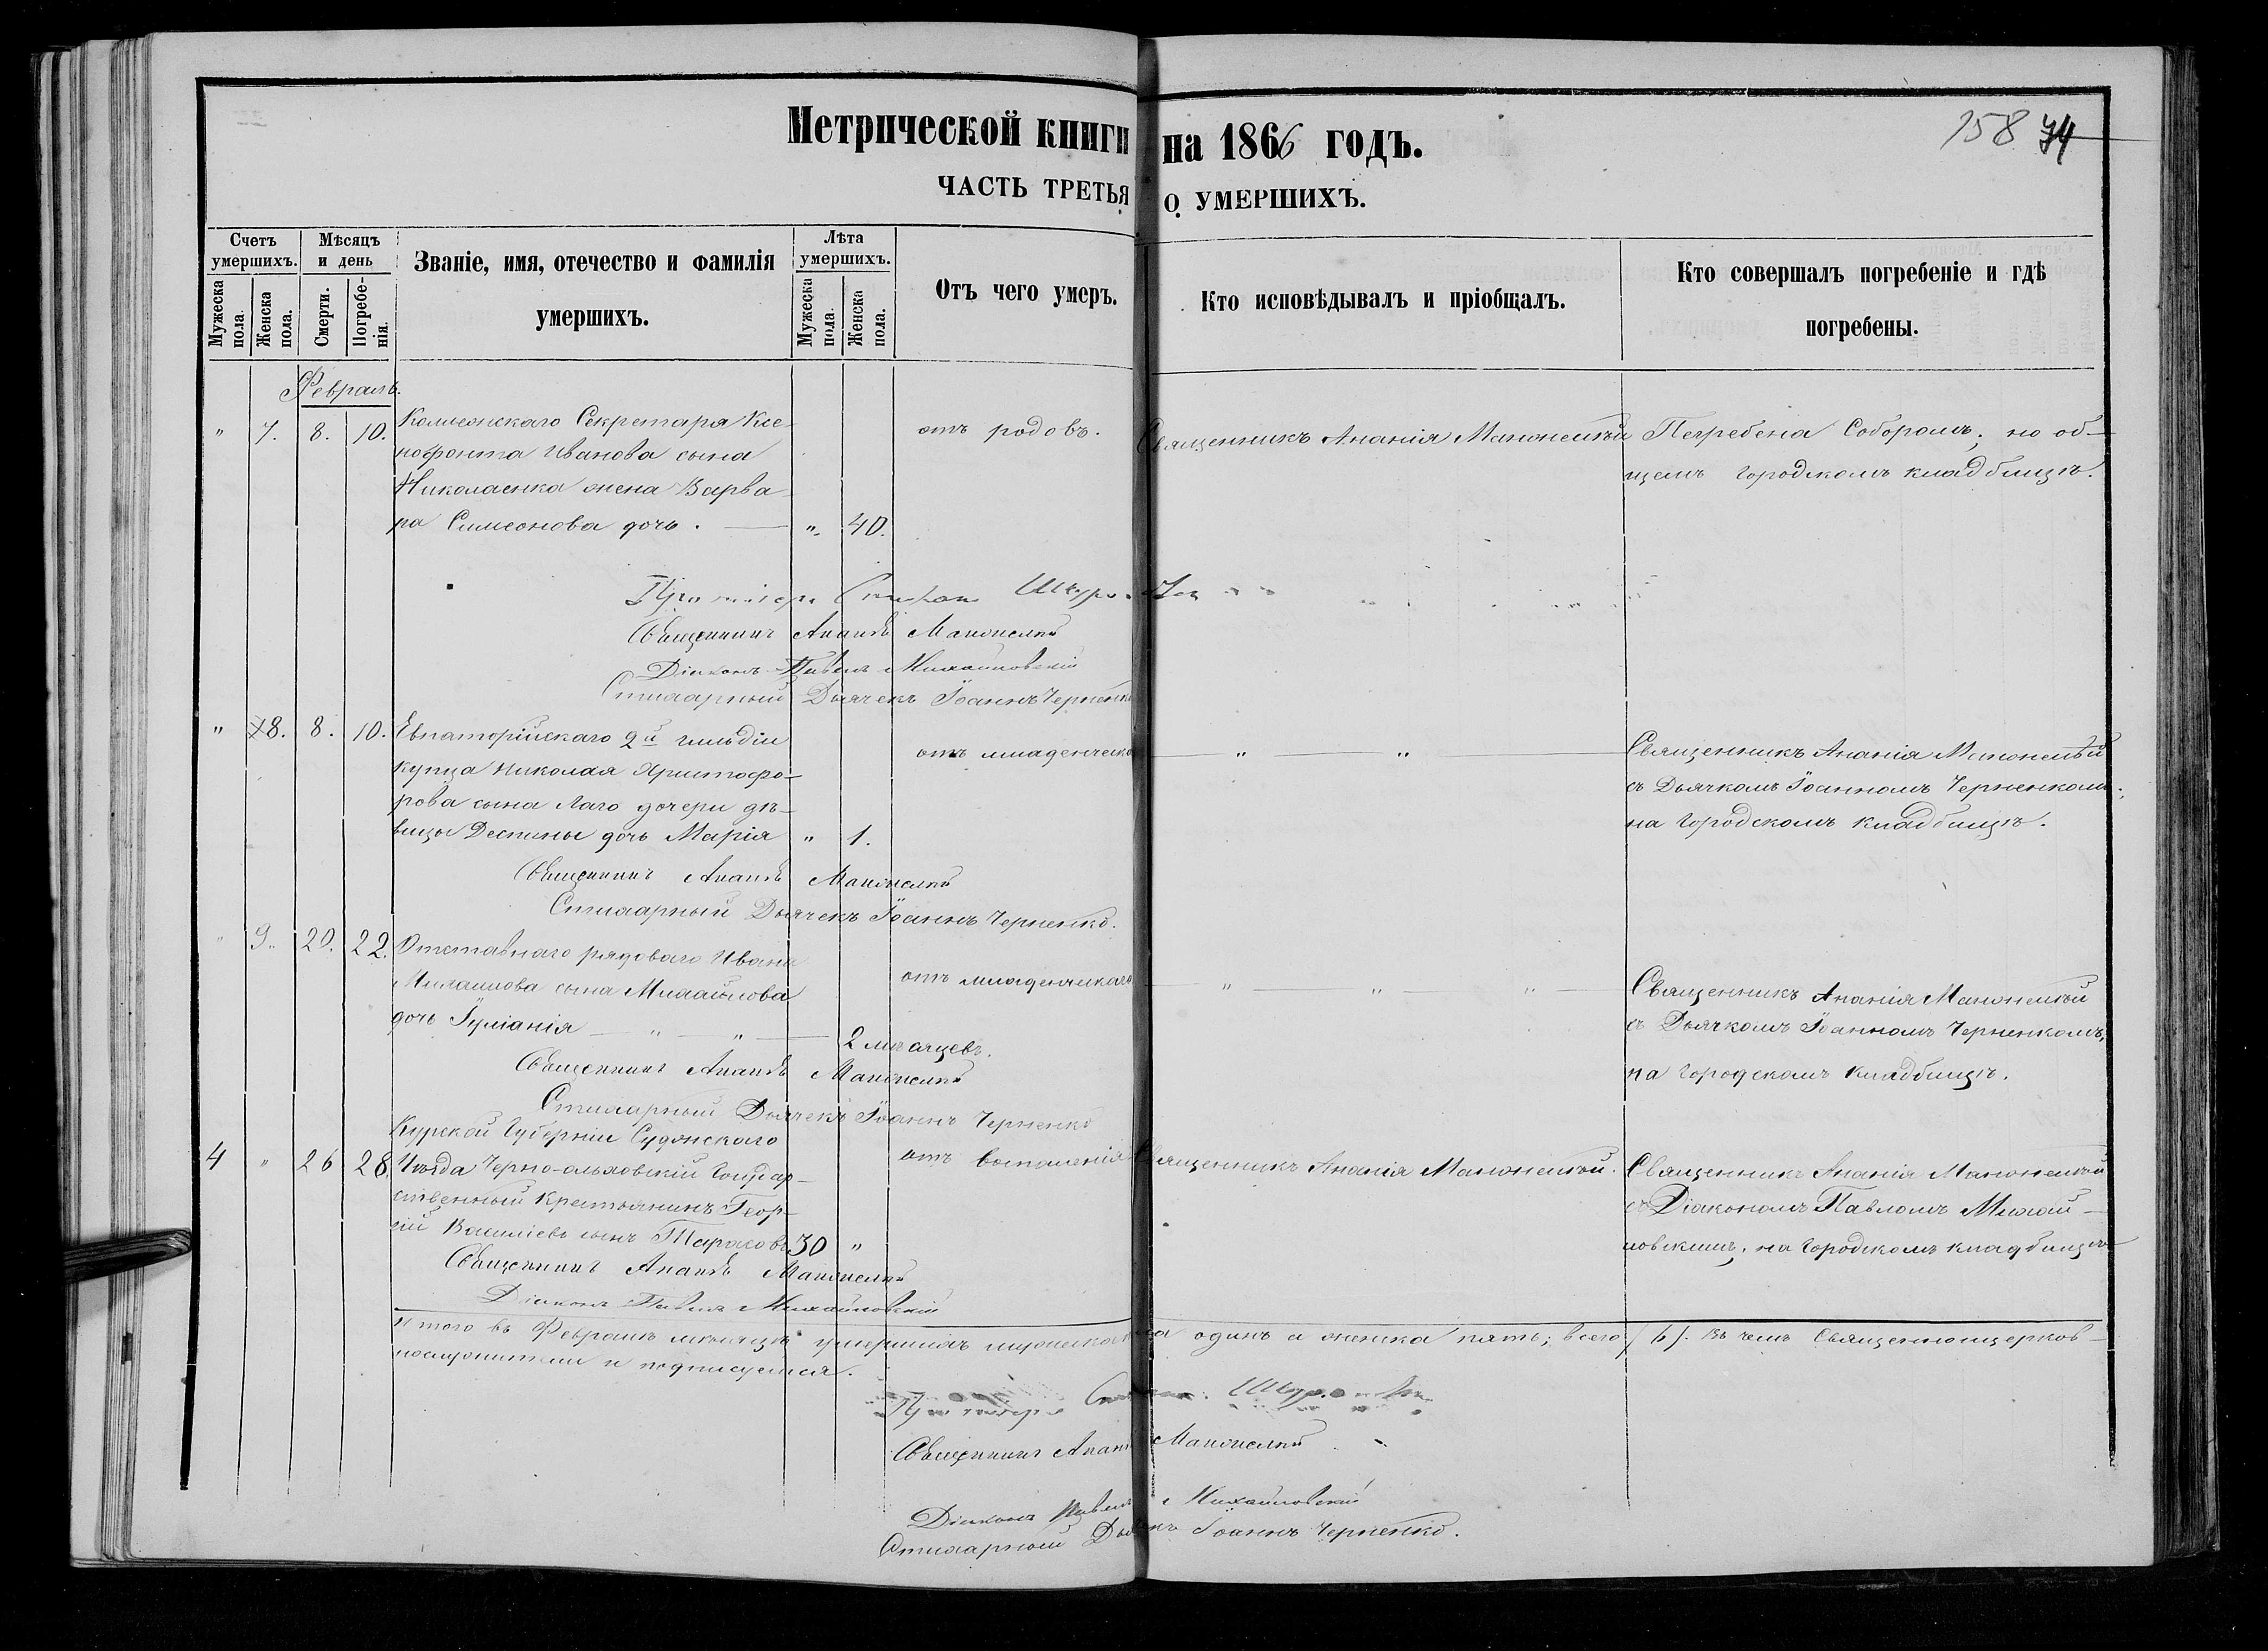 Метрической книги на 1866 годъ.
158 74
ЧАСТЬ ТРЕТЬЯ О УМЕРШИХЪ.
Счетъ умершихъ.
Мужеска пола.
Женска пола.
Мѣсяцъ и день
Смерти.
Погребенія.
Званіе, имя, отечество и фамилія умершихъ.
Лѣта умершихъ.
Мужеска пола.
Женска пола.
Отъ чего умеръ.
Кто исповѣдывалъ и пріобщалъ.
Кто совершалъ погребеніе и гдѣ погребены.
Февраль.
" 7. 8. 10.
Секретаря Ксе-
нофонта Иванова сына
Николаенка жена Варва-
ра Симеонова дочь. — " 40.
отъ родовъ.
Священникъ Ананія
Погребена Соборомъ, на об-
щемъ городскомъ кладбищѣ.
Священникъ
Діаконъ Павелъ Михайловскій
Стихарный Дьячекъ Іоаннъ Черненко
" 8. 8. 10.
Евпаторійскаго 2й гильдіи
купца Николая Христофо-
рова сына Лаго дочери дѣ-
вицы Деспины дочь Марія " 1.
отъ младенческ
" "
Священникъ Ананія
съ Дьячкомъ Іоанномъ Черненкомъ,
на городскомъ кладбищѣ.
Священникъ
Стихарный Дьячекъ Іоаннъ Черненко.
" 9. 20. 22.
Отставнаго рядоваго Ивана
сына Михайлова
дочь Іуліанія — " — " — 2 мѣсяцевъ.
отъ младенческаго
" " "
Священникъ Ананія
съ Дьячкомъ Іоанномъ Черненкомъ,
на городскомъ кладбищѣ.
Священникъ
Стихарный Дьячекъ Іоаннъ Черненко
Курской Губерніи Суджнскаго
4 " 26 28.
Уѣзда Черно-ольховскій Государ-
ственный крестьянинъ Геор-
гій Василіевъ сынъ Тарасовъ 30 "
отъ воспаленія
Священникъ Ананія
Священникъ Ананія
съ Діакономъ Павломъ Михай-
ловскимъ, на городскомъ кладбищѣ
Священникъ
Діаконъ Павелъ Михайловскій
Итого въ Февралѣ мѣсяцѣ умершихъ мужеска пола одинъ а женска пять; всего /6/. Въ чемъ Священноцерков-
нослужители и подписуемся.
Священникъ
Діаконъ Павелъ Михайловскій
Стихарный Дьячекъ Іоаннъ Черненко.